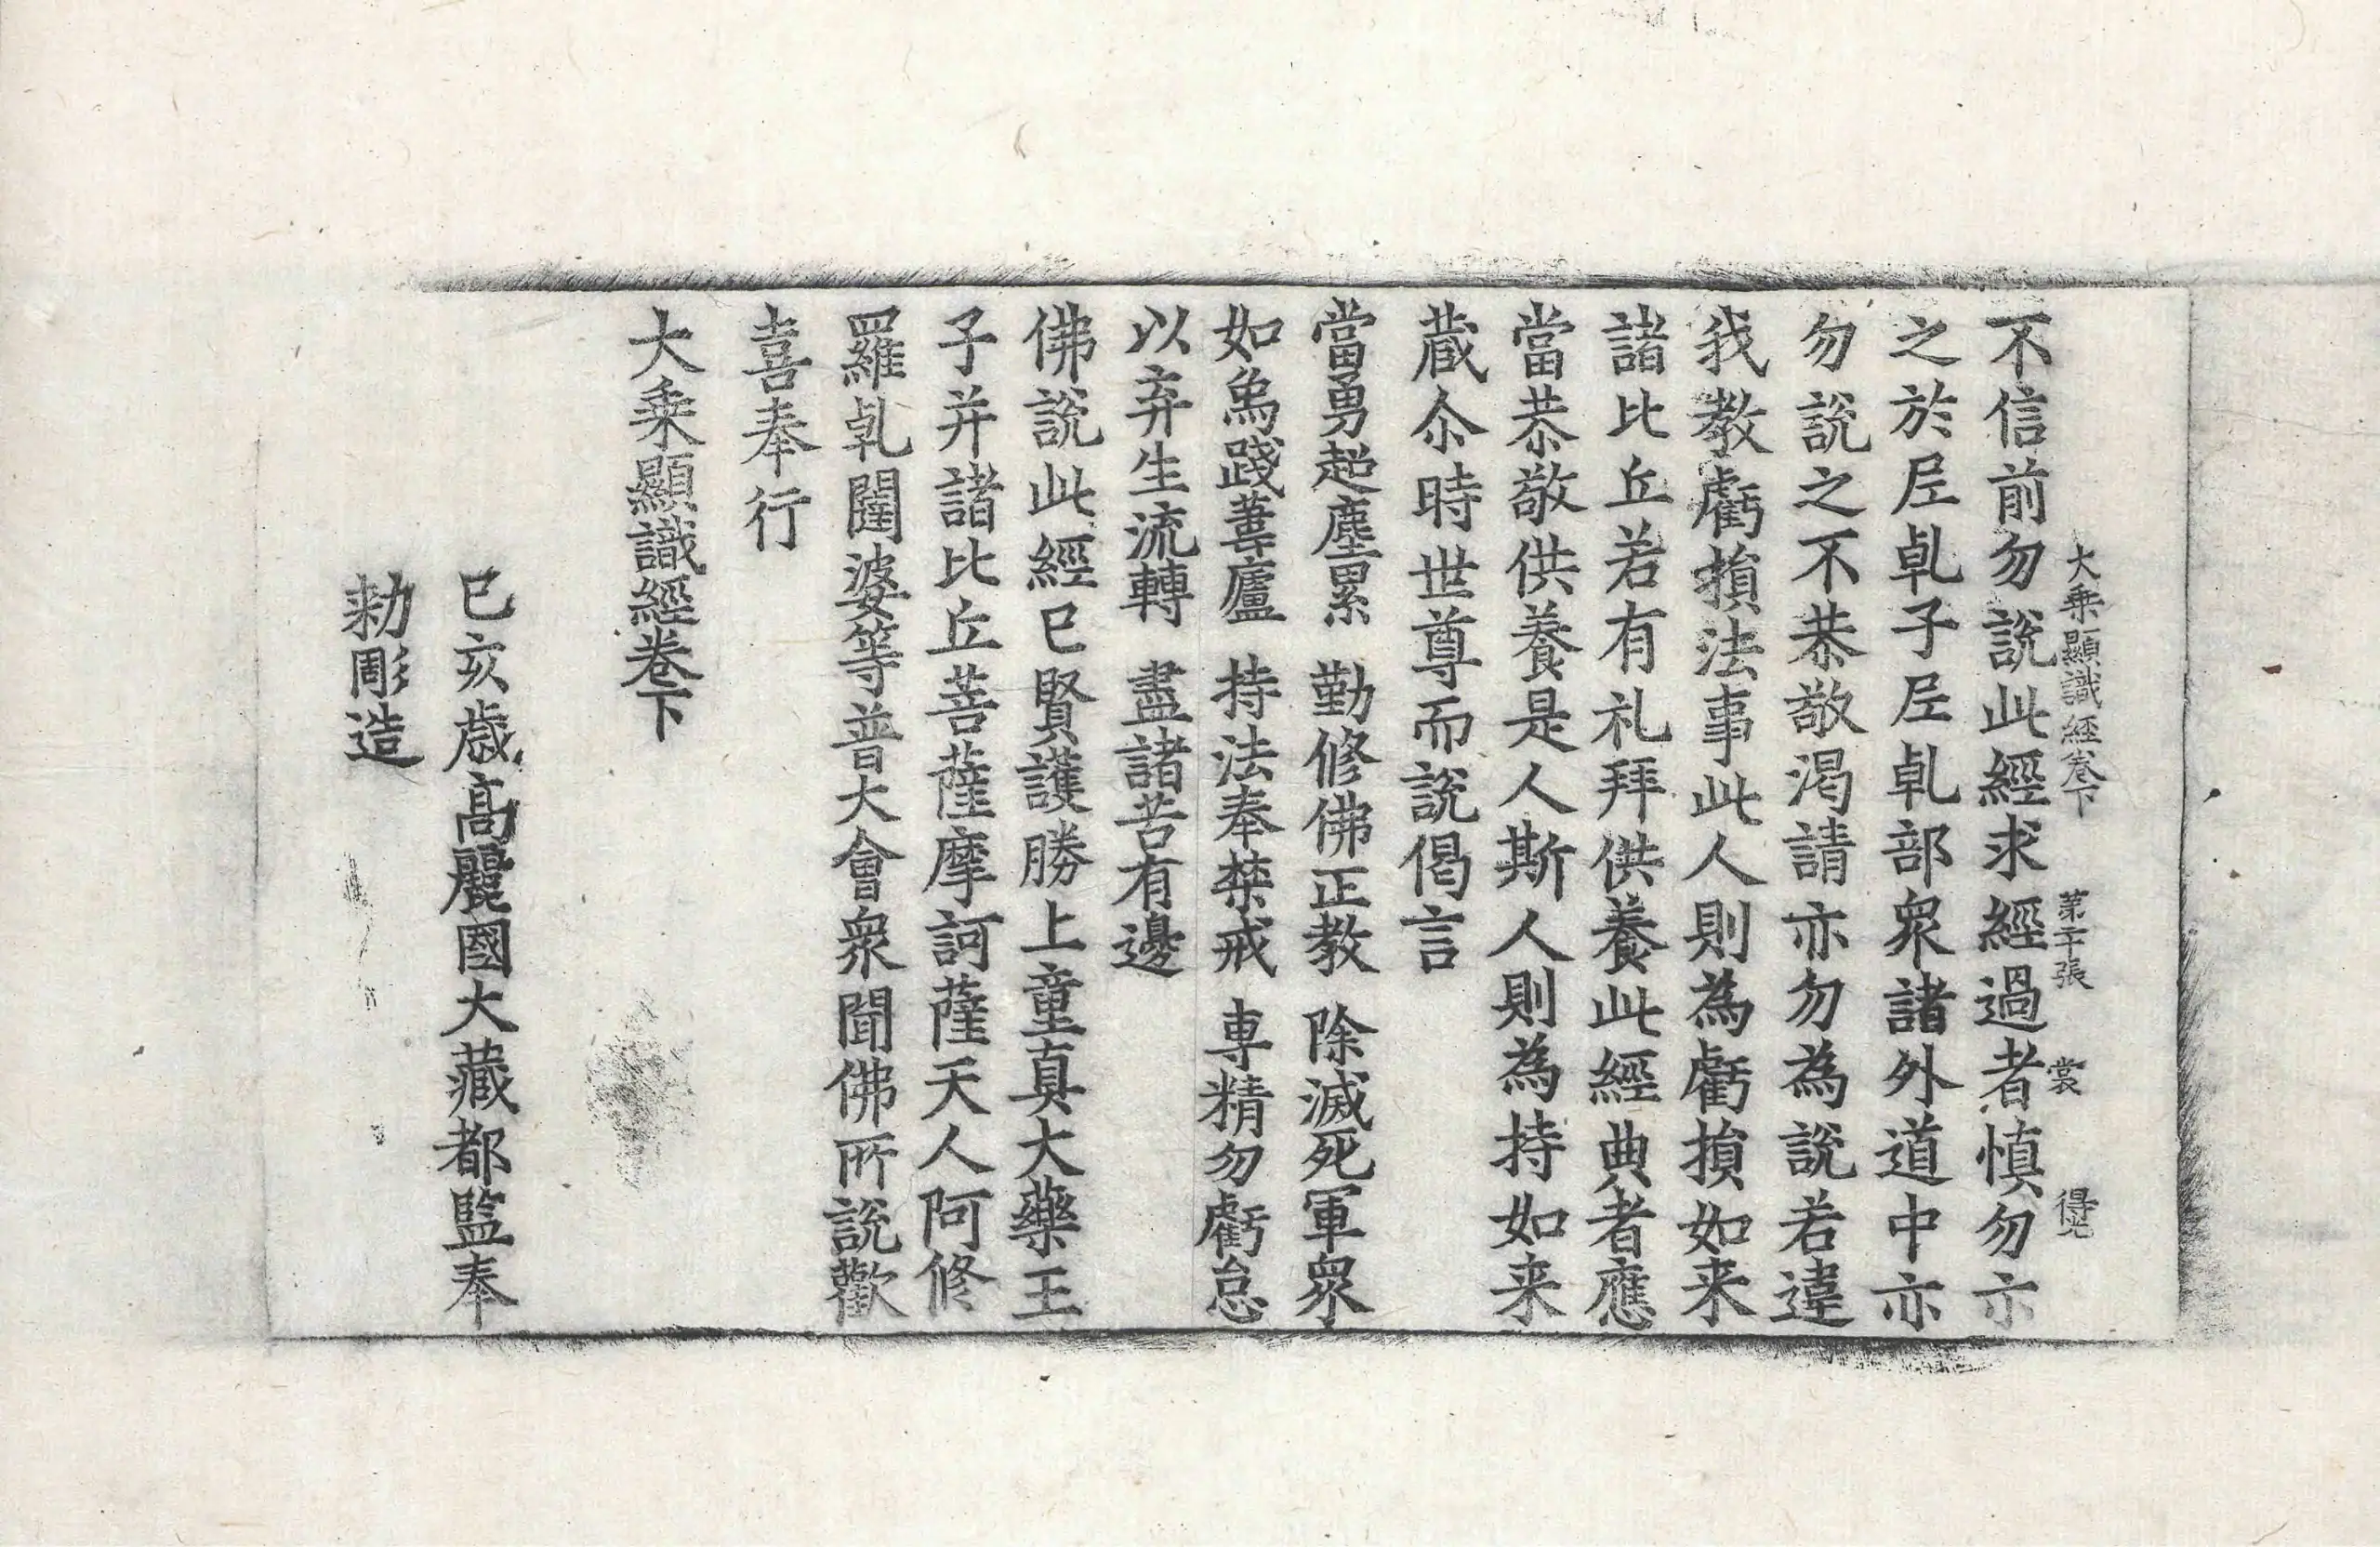 大乗顯識經卷下 第二十張 裳 得光
不信前勿說此經求經過者慎勿亦
之於𡰱乹子𡰱乹部衆諸外道中亦
勿說之不恭敬渴請亦勿為說若違
我教虧損法事此人則為虧損如来
諸比丘若有礼拜供養此經典者應
當恭敬供養是人斯人則為持如来
蔵尒時世尊而說偈言
當勇超塵累 勤修佛正教 除滅死軍衆
如鳥踐葦廬 持法奉禁戒 専精勿虧怠
以弃生流轉 盡諸苦有邊
佛說此經已賢護勝上童真大藥王
子并諸比丘菩薩摩訶薩天人阿修
羅乹闥婆等普大會衆聞佛所說歡
喜奉行
大乗顯識經卷下
己亥歳高麗國大藏都監奉
勑彫造